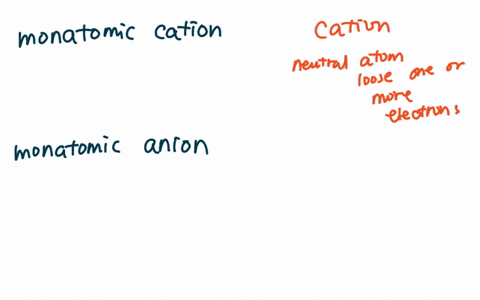 monatomic cation
monatomic anion
Cation
neutral atom
loose one or
more
electrons